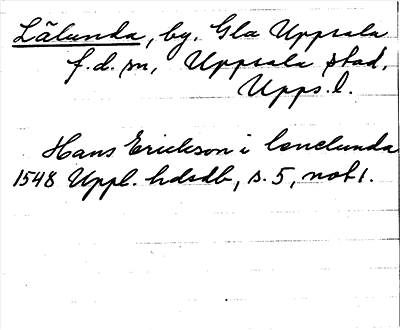 Lälunda, by. Gla Uppsala
f.d. sn, Uppsala stad,
Upps. l.
Hans Erickson i lenelunda
1548 Uppl. hdsdb, s. 5, not 1.